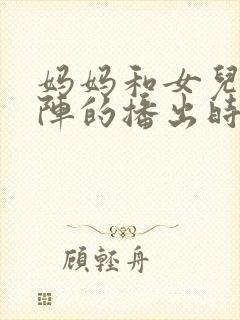 妈妈和女兒
陣的播出時
顧輕舟